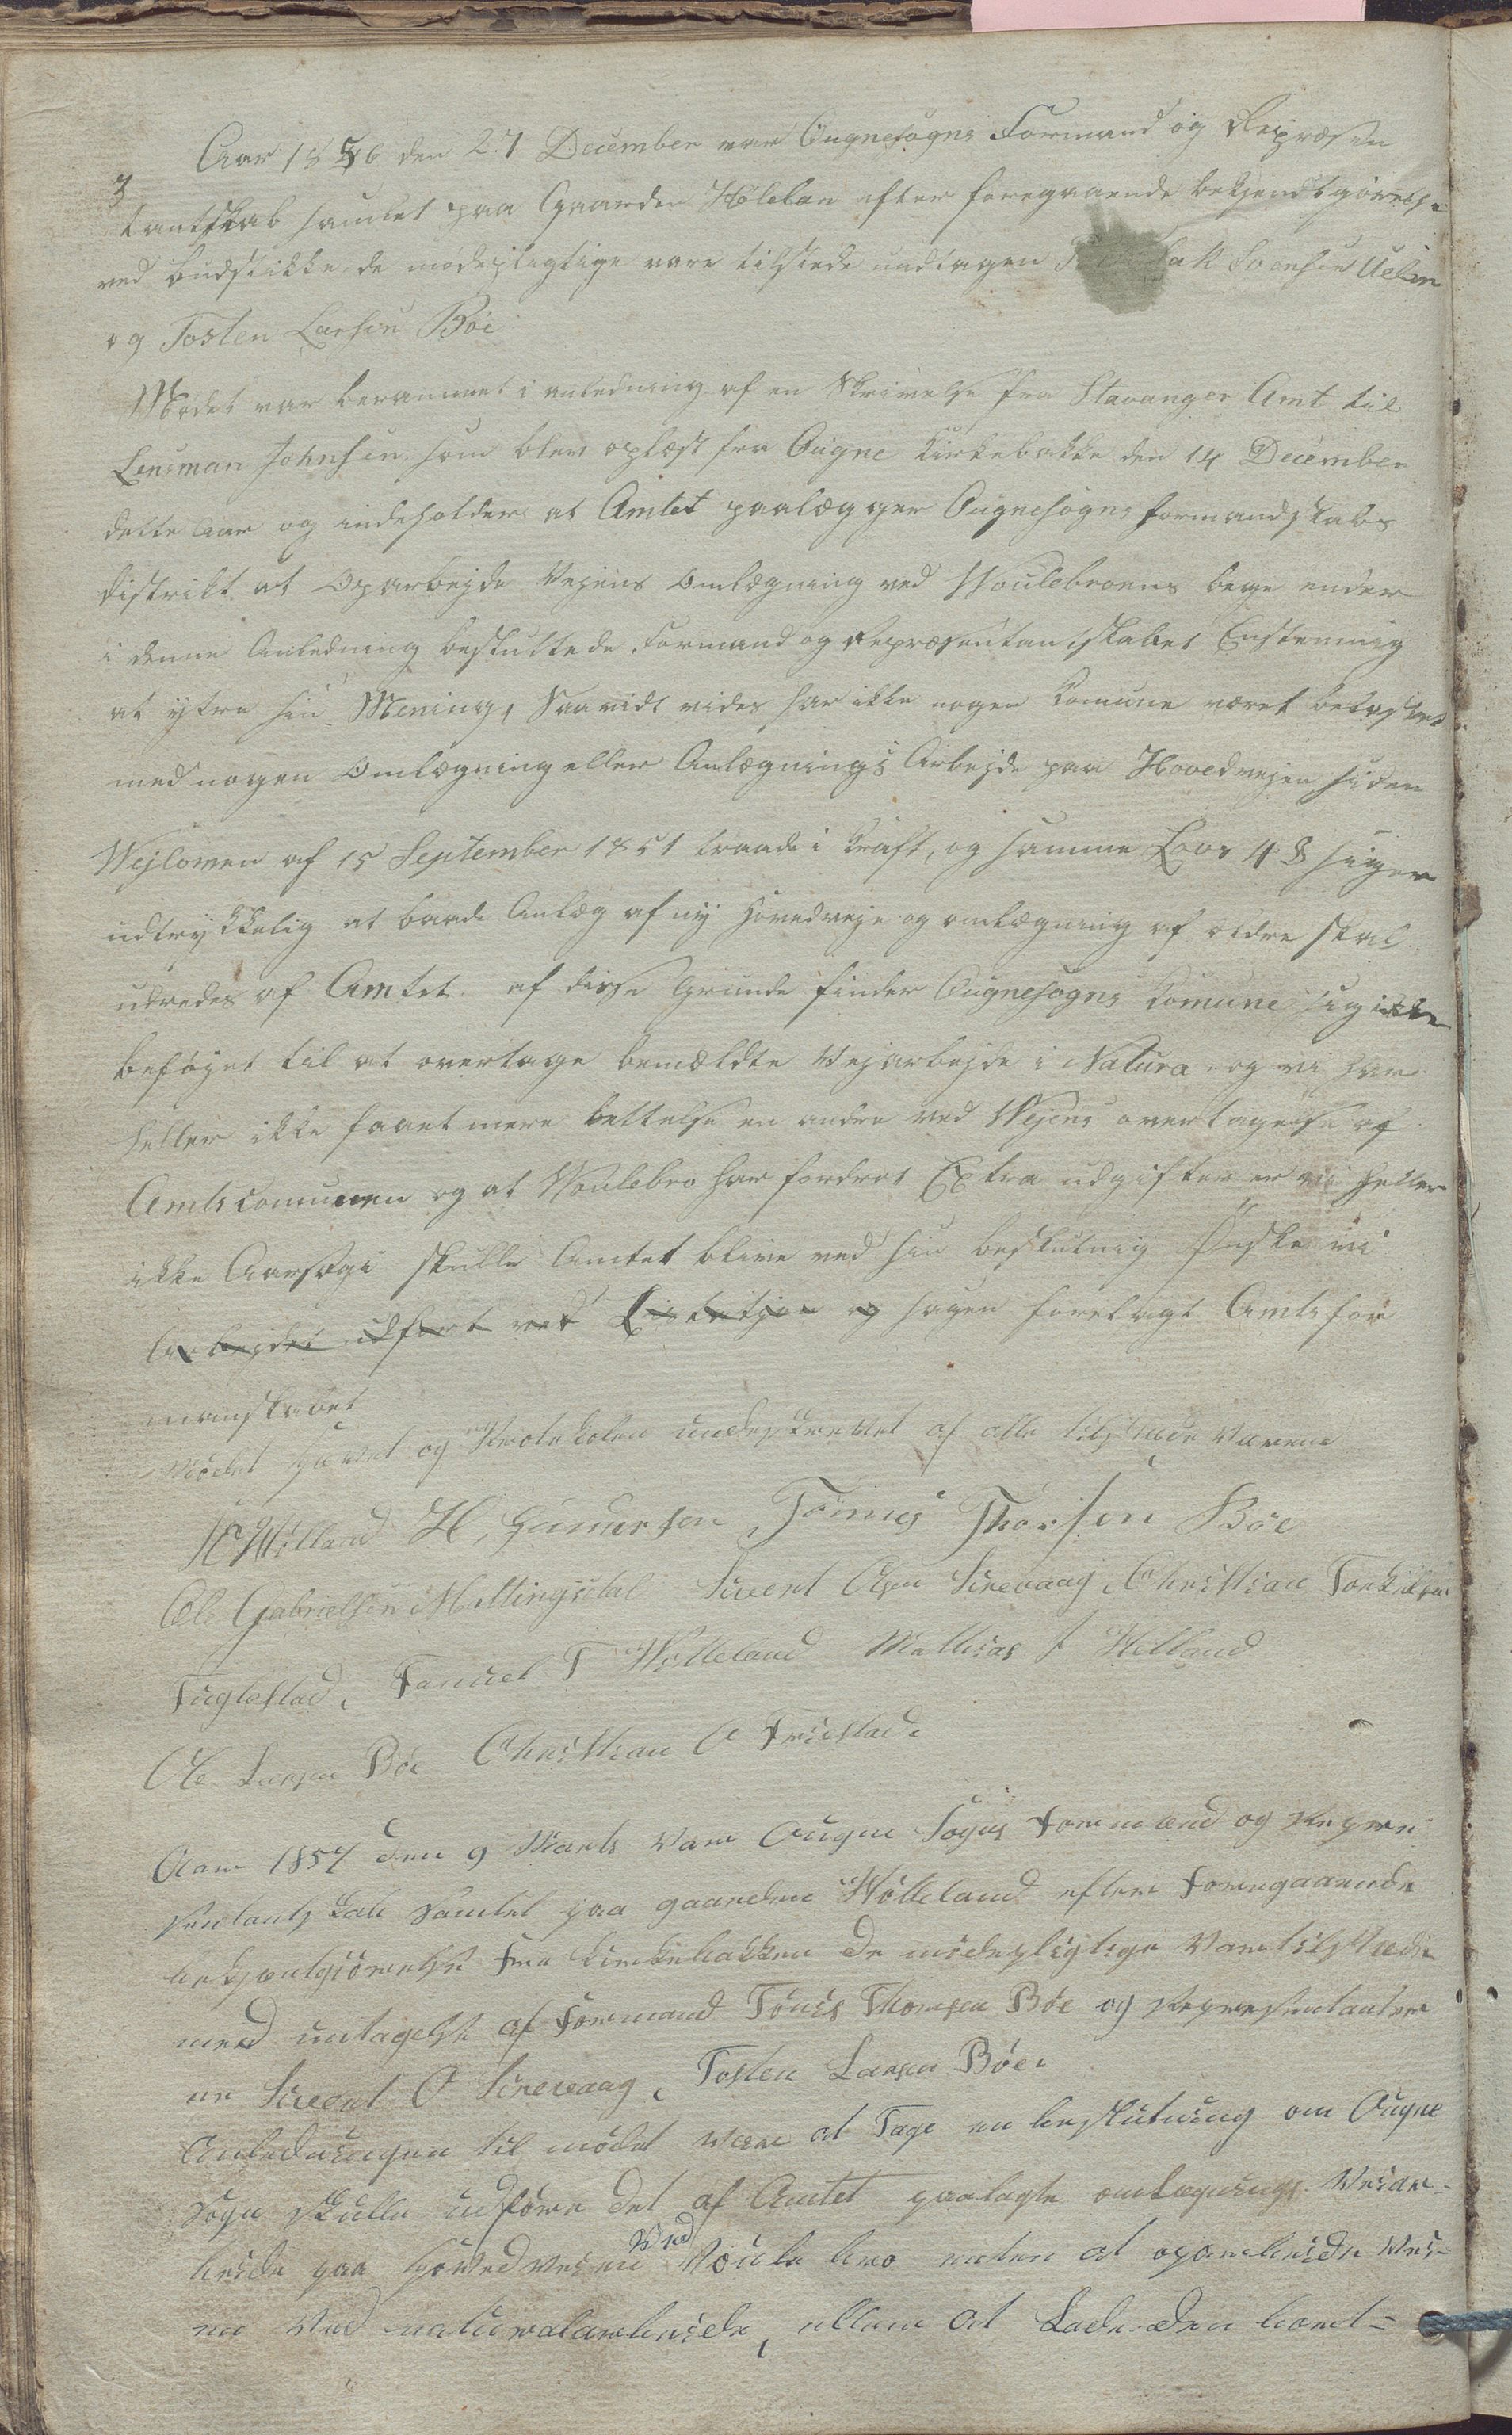 Aar 1856 den 27 December var Ougnesogns Formand og Repræsen
3
tantskab samlet paa Gaarden Hølelan efter foregaaende bekjendtgjørelse
ved budstikke. de mødepligtige vare tilstede undtagen Svensen Uelan
og Tosten Larsen Böe
Mødet var berammet i anledning af en Skrivelse fra Stavanger Amt til
Lensman Johnsen som blev oplæst fra Ougne Kirkebakke den 14 December
dette Aar og indeholder at Amtet paalægger Ougnesogns formandskabs
distrikt at Oparbejde Vejens Omlægning ved Woulebroens bege ender
i denne Anledning besluttede Formand og Repræsentantskabet Enstemmig
at ytre sin Mening, Saavidt vides har ikke nogen Comune været belastet
med nogen Omlægning eller Anlægnings Arbejde paa Hovedvejen siden
Wejloven af 15 September 1851 traade i kraft, og samme Lovs 4 § siger
udtrykkelig at baade Anlæg af ny Hovedveje og omlægning af ældre skal
udredes af Amtet. af disse Grunde finder Ougnesogns Comune sig ikke
beføjet til at overtage bemældte Vejarbejde i Natura og vi har
heller ikke faaet mere lettelse en andre ved Wejens overtagelse af
Amtscomunen og at Voulebro har fordret Extra udgifter er vi heller
ikke Aarsag i skulle Amtet blive ved sin beslutnig Ønske vi
Arbejdet udført ved og sagen forelagt Amtsfor
manskabet
Mødet hævet og Protokolen underskrevet af alle tilstede Værene
Hölland H, Gunnersen Tönnes Thorsen Böe
Ole Gabrielsen Mattingsdal Sivert Olsen Sirevaag, Christian Torkilsen
Fuglestad, Samuel T Hölleland Mathias J Helland
Ole Larsen Böe Christian O Friestad.
Aar 1857 den 9 Marts Var Ougne Sogns Formænd og Repre
sentantskab Samlet paa gaarden Hölleland efter Foregaaende
bekjentgjörelse fra Kirkebakken De mödepligtige Var tilstæde
med untagelse af Formand Tönes Thorsen Böe og Representanter
ne Sivert O Sirevaag, Tosten Larsen Böe.
Anledningen til mödet var at Tage en beslutning om Ougne
Sogn skulle udföre det af Amtet paalagte omlægnings Veiar-
beide paa Hovedveien Ved Voule bro enten at oparbeide Vei-
en Ved naturalarbeide, eller at Lade den bort-